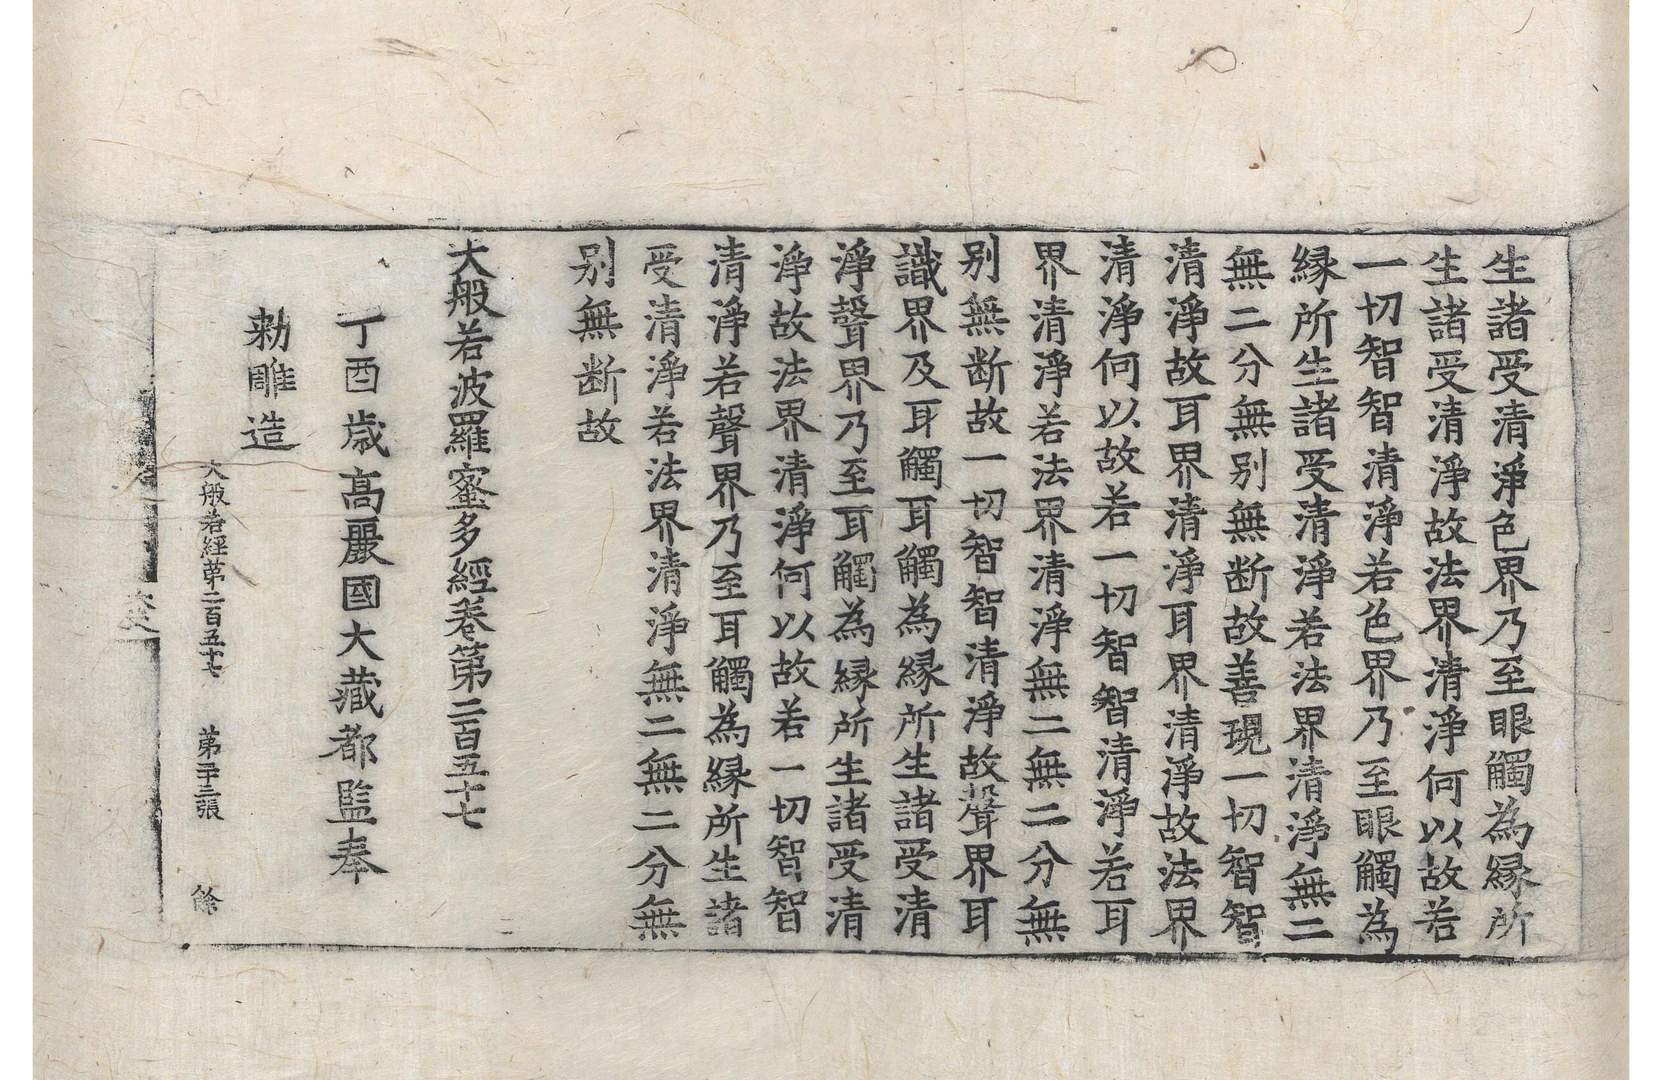 生諸受清淨色界乃至眼觸為緣所
生諸受清淨故法界清淨何以故若
一切智智清淨若色界乃至眼觸為
緣所生諸受清淨若法界清淨無二
無二分無別無断故善現一切智智
清淨故耳界清淨耳界清淨故法界
清淨何以故若一切智智清淨若耳
界清淨若法界清淨無二無二分無
別無断故一切智智清淨故聲界耳
識界及耳觸耳觸為緣所生諸受清
淨聲界乃至耳觸為緣所生諸受清
淨故法界清淨何以故若一切智智
清淨若聲界乃至耳觸為緣所生諸
受清淨若法界清淨無二無二分無
別無断故
大般若波羅蜜多經卷第二百五十七
丁酉歲高麗國大藏都監奉
勅雕造
大般若經第二百五十七 第二十三張 餘